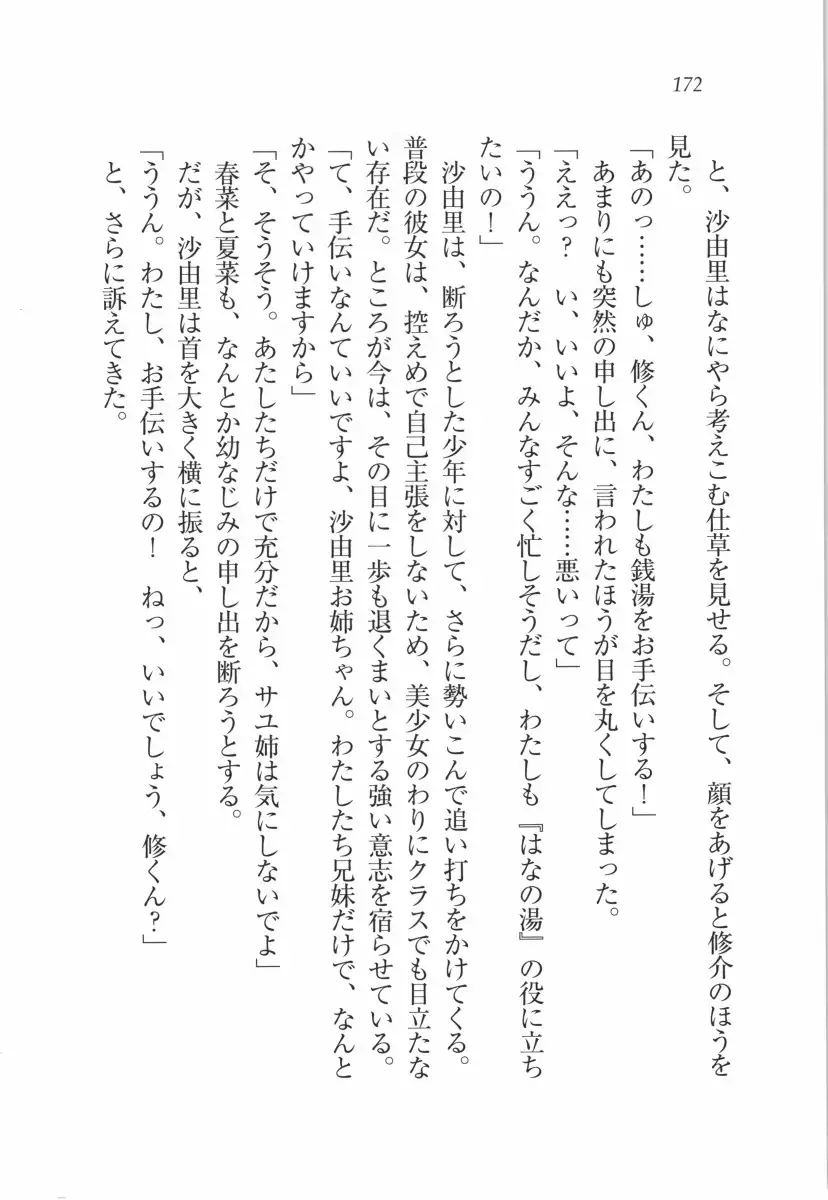 172
と、沙由里はなにやら考えこむ仕草を見せる。そして、顔をあげると修介のほうを
見た。
「あのっ……しゅ、修くん、わたしも銭湯をお手伝いする！」
あまりにも突然の申し出に、言われたほうが目を丸くしてしまった。
「ええっ？　い、いいよ、そんな……悪いって」
「ううん。なんだか、みんなすごく忙しそうだし、わたしも『はなの湯』の役に立ち
たいの！」
沙由里は、断ろうとした少年に対して、さらに勢いこんで追い打ちをかけてくる。
普段の彼女は、控えめで自己主張をしないため、美少女のわりにクラスでも目立たな
い存在だ。ところが今は、その目に一歩も退くまいとする強い意志を宿らせている。
「て、手伝いなんていいですよ、沙由里お姉ちゃん。わたしたち兄妹だけで、なんと
かやっていけますから」
「そ、そうそう。あたしたちだけで充分だから、サユ姉は気にしないでよ」
春菜と夏菜も、なんとか幼なじみの申し出を断ろうとする。
だが、沙由里は首を大きく横に振ると、
「ううん。わたし、お手伝いするの！　ねっ、いいでしょう、修くん？」
と、さらに訴えてきた。